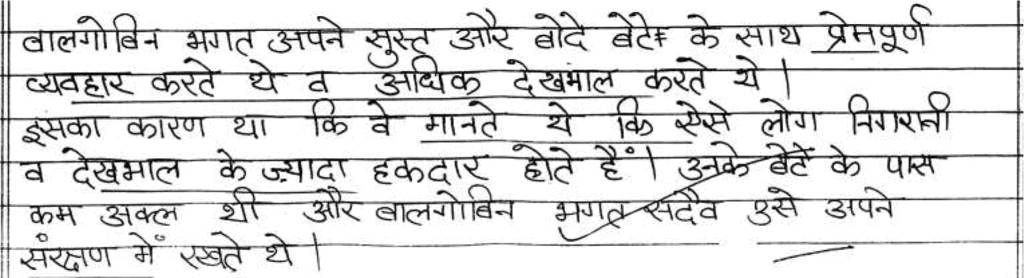 बालगोबिन भगत अपने सुस्त और बोदे बेटे के साथ प्रेमपूर्ण
व्यवहार करते थे व अधिक देखभाल करते थे |
इसका कारण था कि वे मानते थे कि ऐसे लोग निगरानी
व देखभाल के ज़्यादा हकदार होते हैं। उनके बेटे के पास
कम अक्ल थी और बालगोबिन भगत सदैव उसे अपने
संरक्षण में रखते थे |